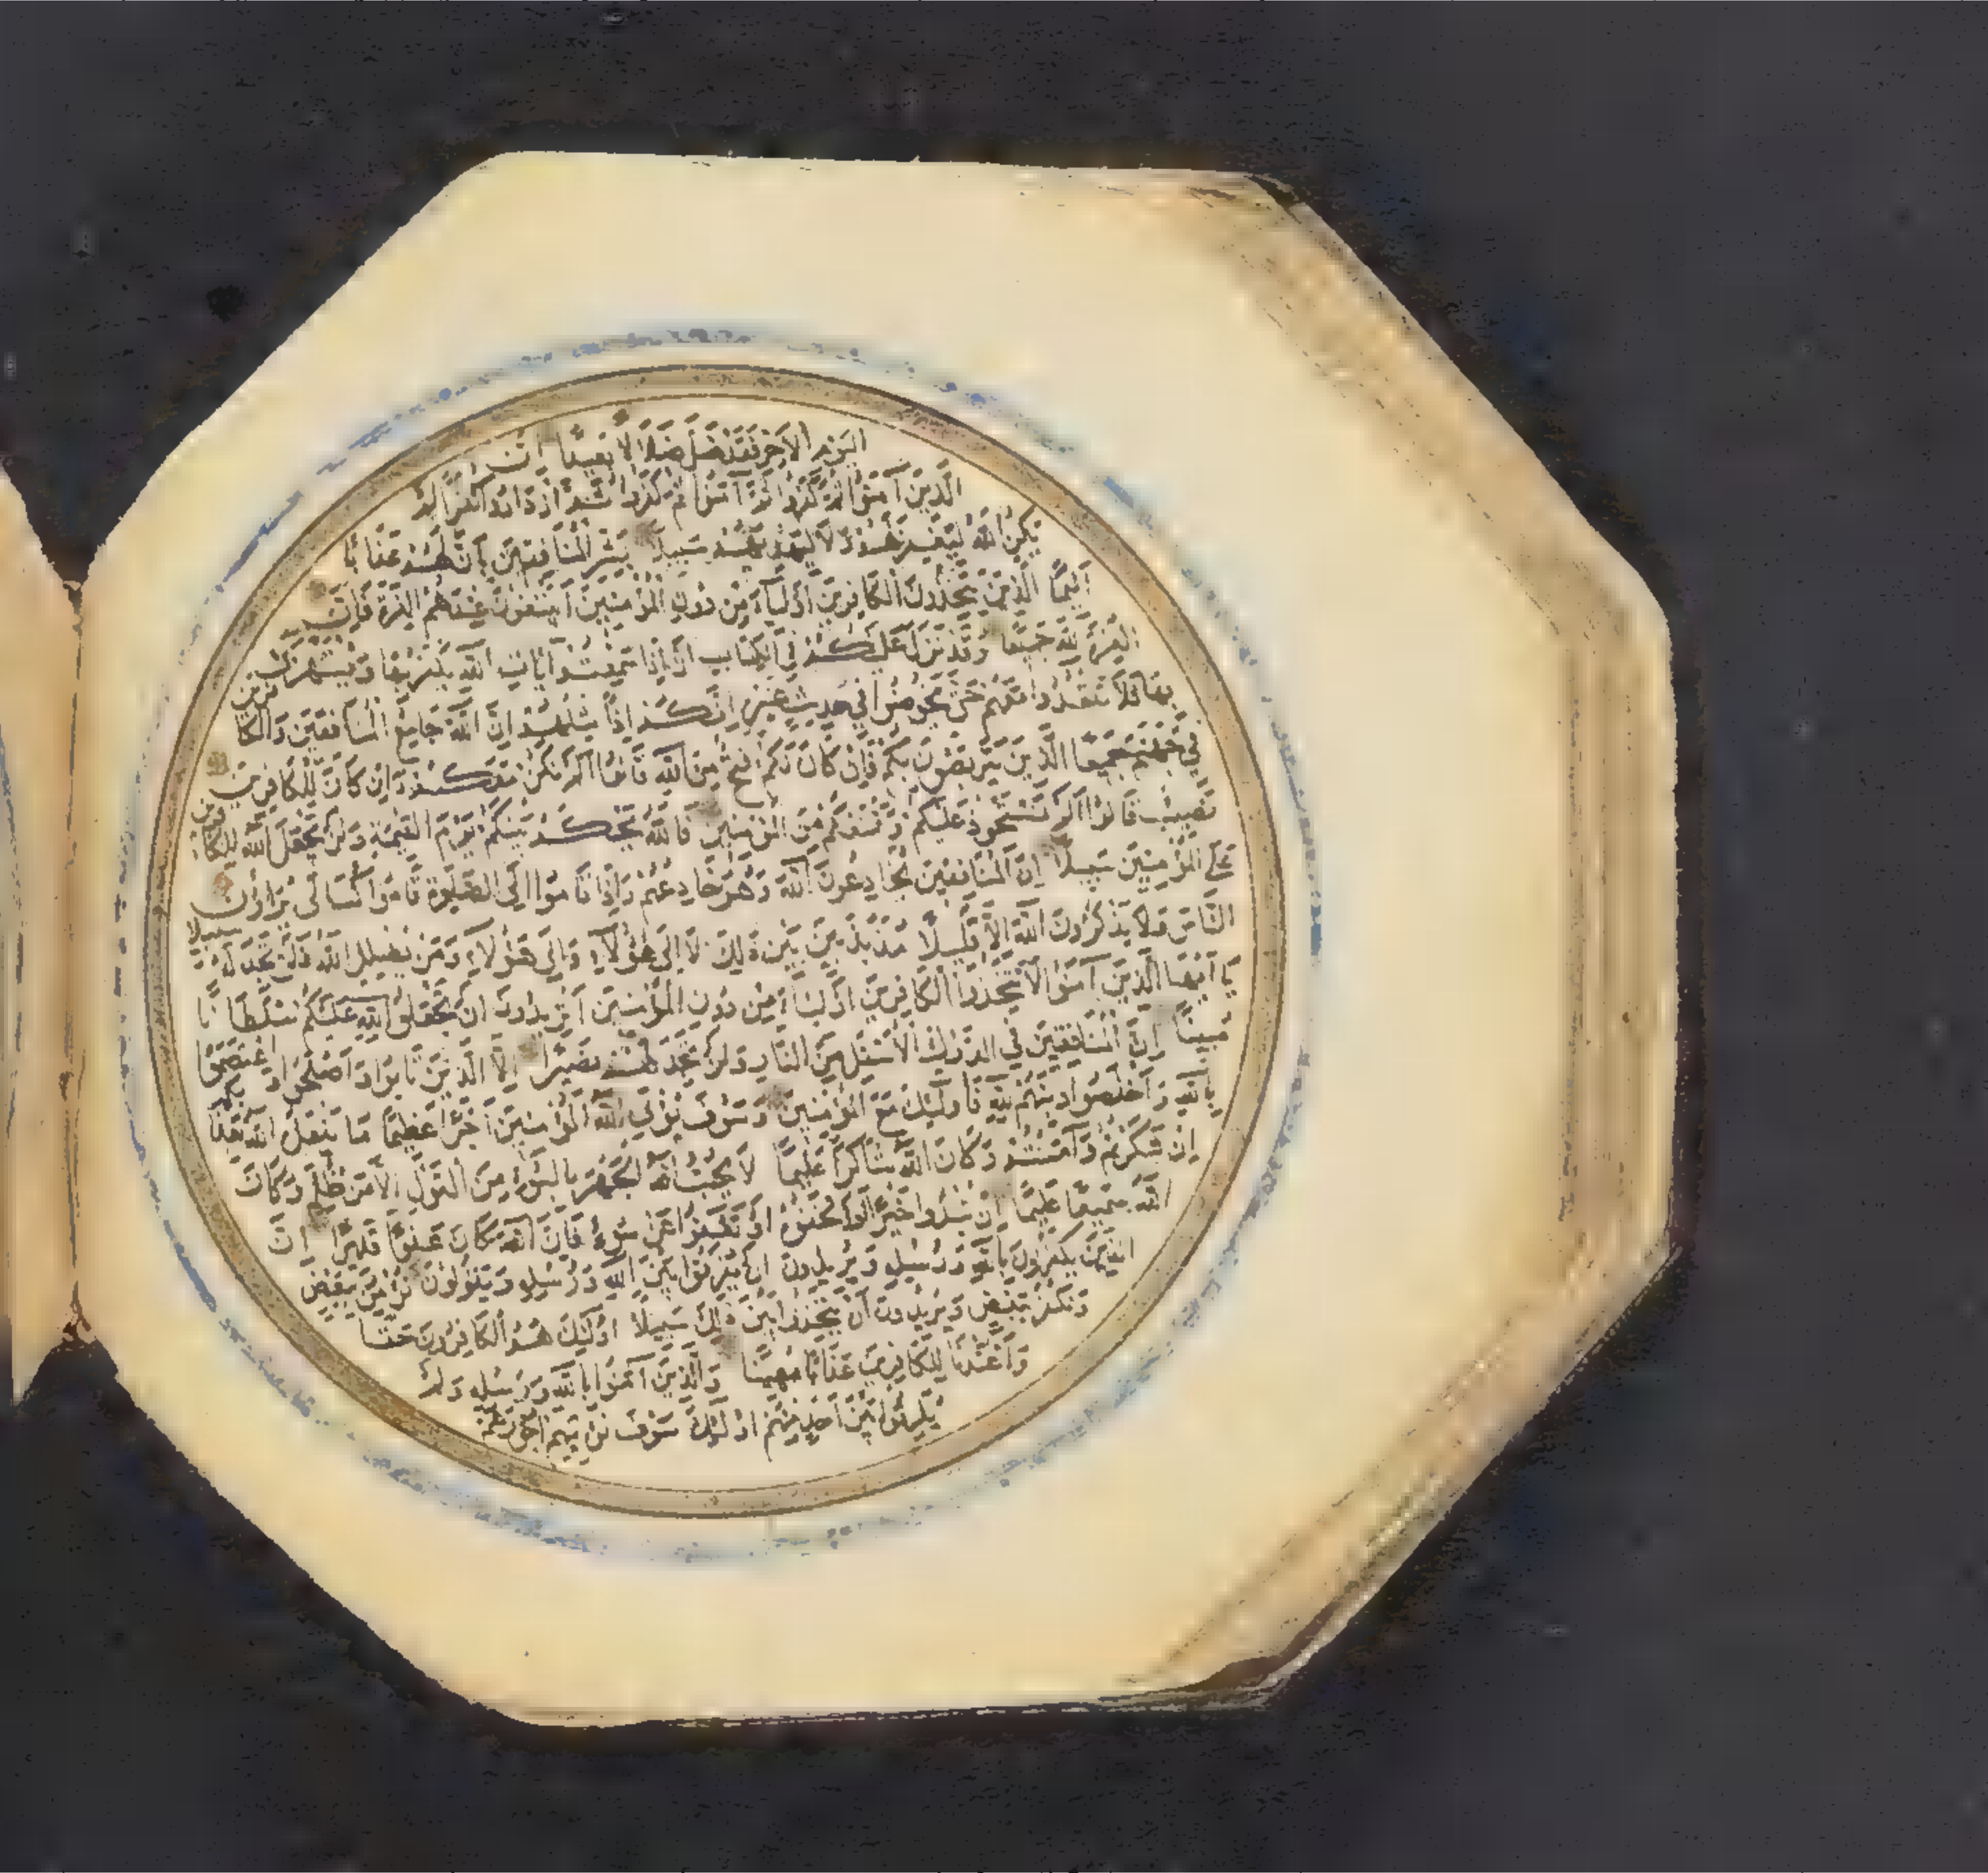 اليوم الآخر فقد ضل ضلالا بعيدا ان
الذين آمنوا ثم كفروا ثم آمنوا ثم كفروا ثم ازدادوا كفرا لم
يكن الله ليغفر لهم ولا ليهديهم سبيلا بشر المنافقين بأن لهم عذابا
أليما الذين يتخذون الكافرين أولياء من دون المؤمنين أيبتغون عندهم العزة فإن
العزة لله جميعا وقد نزل عليكم في الكتاب أن إذا سمعتم آيات الله يكفر بها ويستهزئ
بها فلا تقعدوا معهم حتى يخوضوا في حديث غيره إنكم إذا مثلهم إن الله جامع المنافقين والكافرين
في جهنم جميعا الذين يتربصون بكم فإن كان لكم فتح من الله قالوا ألم نكن معكم وإن كان للكافرين
نصيب قالوا ألم نستحوذ عليكم ونمنعكم من المؤمنين فالله يحكم بينكم يوم القيمة ولن يجعل الله للكافرين
على المؤمنين سبيلا إن المنافقين يخادعون الله وهو خادعهم وإذا قاموا إلى الصلوة قاموا كسالى يراؤن
الناس ولا يذكرون الله إلا قليلا مذبذبين بين ذلك لا إلى هؤلاء وإلى هؤلاء ومن يضلل الله فلن تجد له سبيلا
يا أيها الذين آمنوا لا تتخذوا الكافرين أولياء من دون المؤمنين أتريدون أن تجعلوا لله عليكم سلطانا
مبينا إن المنافقين في الدرك الأسفل من النار ولن تجد لهم نصيرا إلا الذين تابوا وأصلحوا واعتصموا
بالله وأخلصوا دينهم لله فأولئك مع المؤمنين وسوف يؤتي الله المؤمنين أجرا عظيما ما يفعل الله بعذابكم
إن شكرتم وآمنتم وكان الله شاكرا عليما لا يحب الله الجهر بالسوء من القول إلا من ظلم وكان
الله سميعا عليما إن تبدوا خيرا أو تخفوه أو تعفوا عن سوء فإن الله كان عفوا قديرا إن
الذين يكفرون بالله ورسله ويريدون أن يفرقوا بين الله ورسله ويقولون نؤمن ببعض
ونكفر ببعض ويريدون أن يتخذوا بين ذلك سبيلا أولئك هم الكافرون حقا
وأعتدنا للكافرين عذابا مهينا والذين آمنوا بالله ورسله ولم
يفرقوا بين أحد منهم أولئك سوف نؤتيهم أجورهم